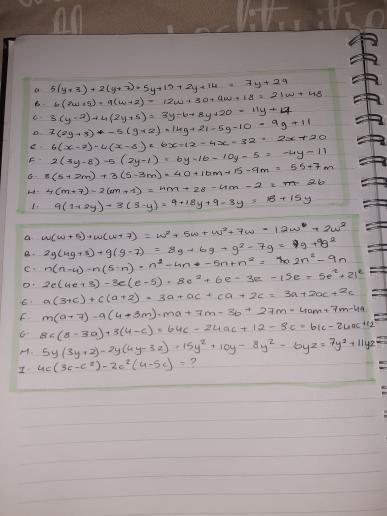 A. 5(y+3) + 2(y+7) = 5y+15 + 2y+14 = 7y+29
B. 6(2w+5) + 9(w+2) = 12w + 30 + 9w + 18 = 21w + 48
C. 3(y-2) + 4(2y+5) = 3y-6 + 8y+20 = 11y+
D. 7(2g+3) - 5(g+2) = 14g + 21 - 5g - 10 = 9g + 11
E. 6(x-2) - 4(x-8) = 6x-12 - 4x - 32 = 2x + 20
F. 2(3y-8) - 5(2y-1) = 6y-16 - 10y - 5 = -4y - 11
G. 8(5+2m) + 3(5-3m) = 40 + 16m + 15 - 9m = 55 + 7m
H. 4(m+7) - 2(m+1) = 4m + 28 - 4m - 2 = 26
I. 9(1+2y) + 3(3-y) = 9 + 18y + 9 - 3y = 18 + 15y
A. w(w+5) + w(w+7) = w² + 5w + w² + 7w = 12w + 2w²
B. 2g(4g+3) + g(g-7) = 8g + 6g + g² - 7g =
C. n(n-4) - n(5-n) = n² - 4n - 5n + n² = 2n² - 9n
D. 2e(4e+3) - 3e(e-5) = 8e² + 6e - 3e - 15e = 5e² + 21e
E. a(3+c) + c(a+2) = 3a + ac + ca + 2c = 3a + 2ac + 2c
F. m(a+7) - 9(4+3m) = ma + 7m - 36 + 27m =
G. 8c(8-3a) + 3(4-c) = 64c - 24ac + 12 - 3c = 61c - 24ac + 12
H. 5y(3y+2) - 2y(4y-3z) = 15y² + 10y - 8y² - 6yz = 7y² +
I. 4c(3c-c²) - 2c²(4-5c) = ?